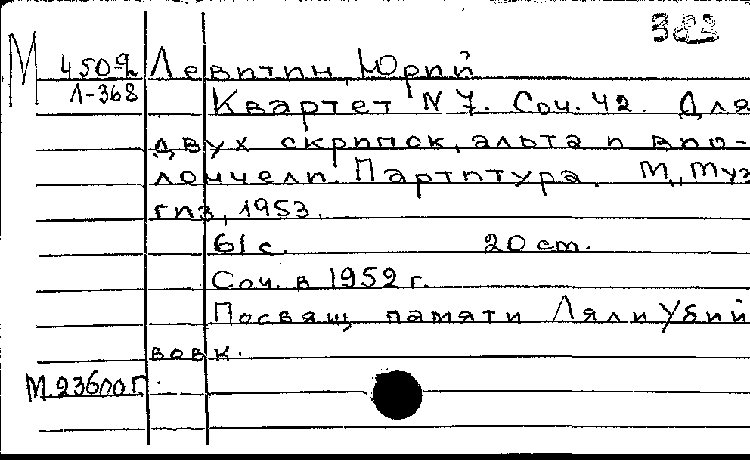 383
М 4509 Левитин, Юрий
Л-368 Квартет N 7. Соч. 42. Для
двух скрипок, альта и вио-
лончели. Партитура. М., Муз
гиз, 1953.
61 с. 20 cm.
Соч. в 1952 г.
Посвящ. памяти Ляли Убий
вовк.
М.23600 Г.